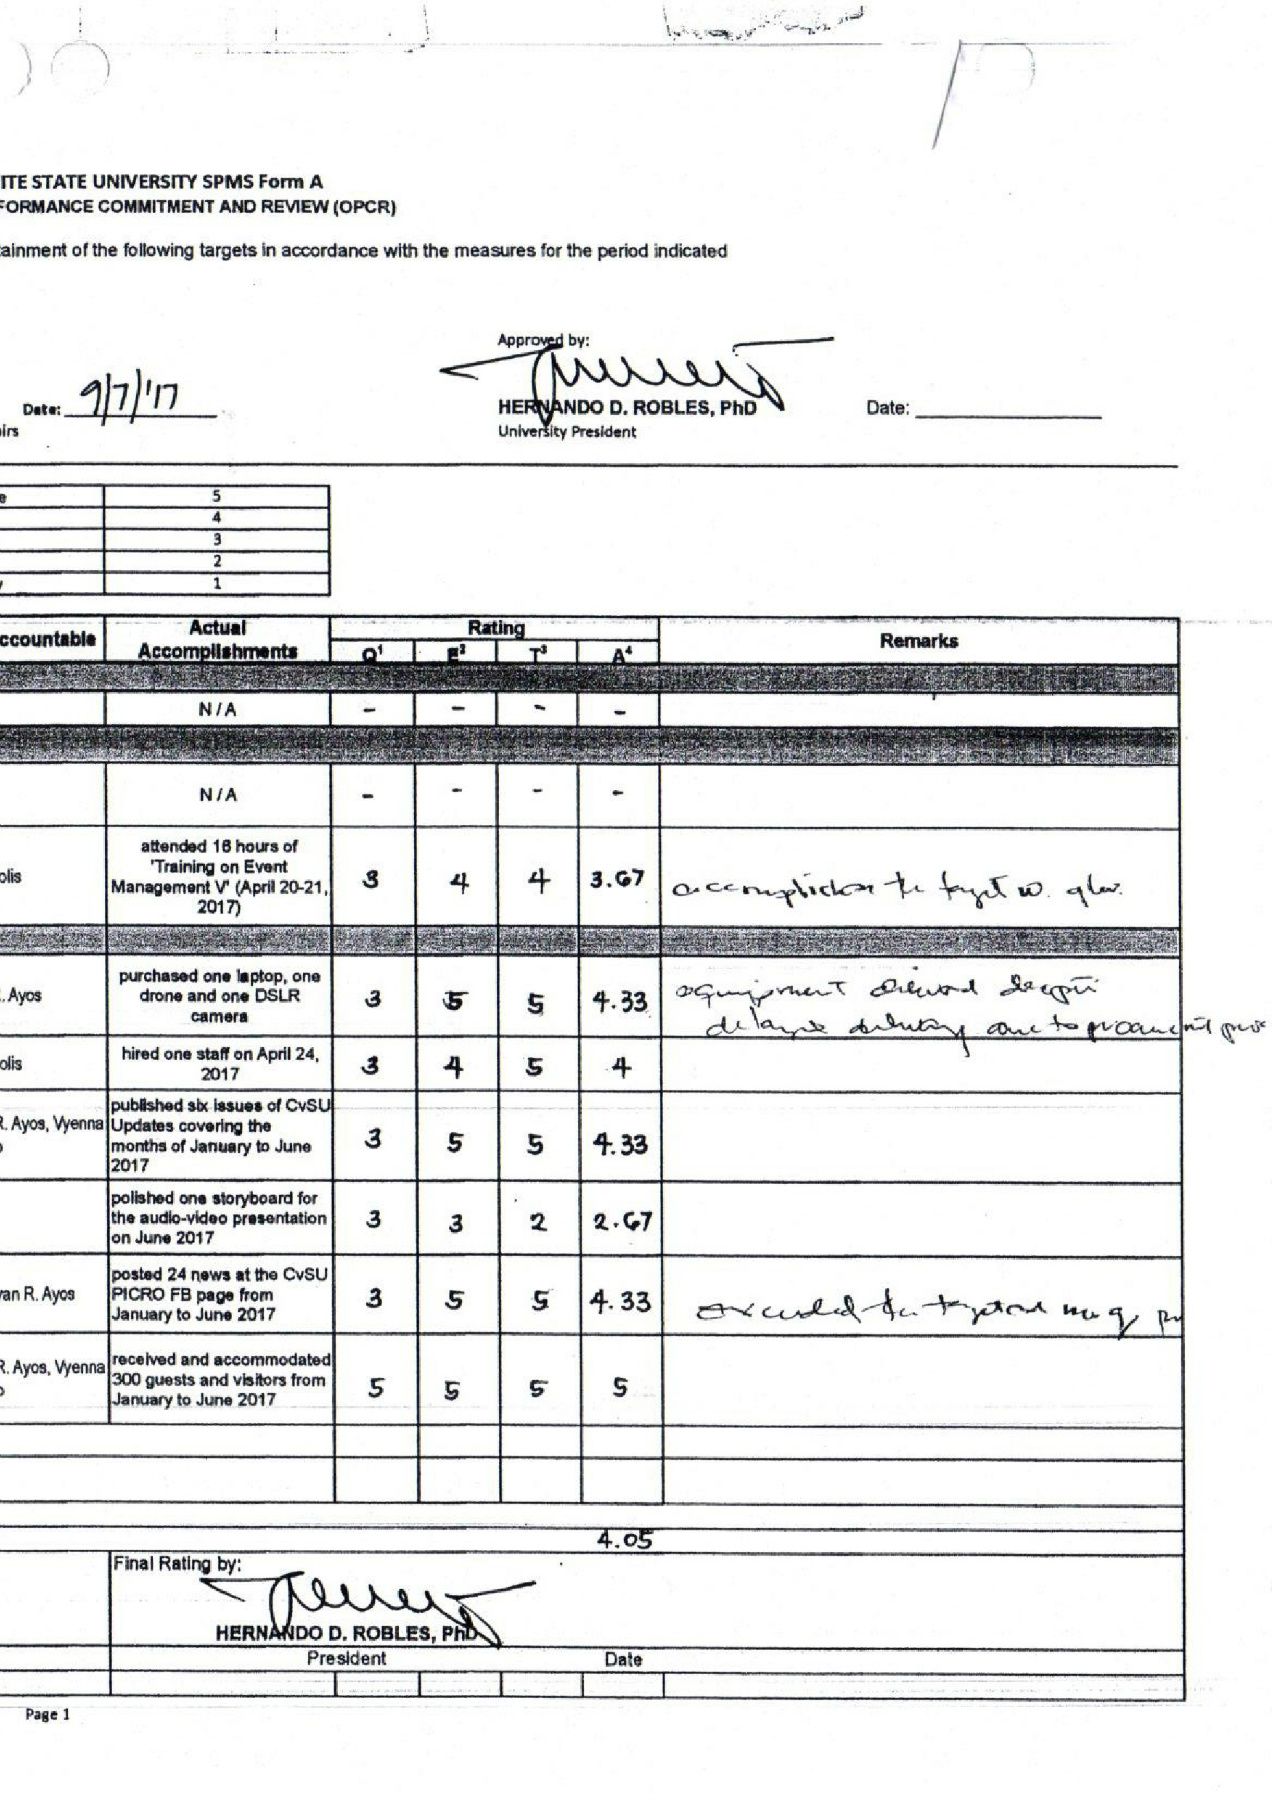 ITE STATE UNIVERSITY SPMS Form A
FORMANCE COMMITMENT AND REVIEW (OPCR)
ainment of the following targets in accordance with the measures for the period indicated
Approved by:
Date: 9/7/'17
HERNANDO D. ROBLES, PhD
Date:
irs
University President
e 5
4
3
2
y 1
ccountable
Actual
Accomplishments
Rating
Q¹ E² T³ A⁴
Remarks
N/A - - - -
N/A - - - -
olis
attended 16 hours of
'Training on Event
Management V' (April 20-21,
2017)
3 4 4 3.67
to target
. Ayos
purchased one laptop, one
drone and one DSLR
camera
3 5 5 4.33
equipment
delivery due to
olis
hired one staff on April 24,
2017
3 4 5 4
R. Ayos, Vyenna
published six issues of CvSU
Updates covering the
months of January to June
2017
3 5 5 4.33
polished one storyboard for
the audio-video presentation
on June 2017
3 3 2 2.67
van R. Ayos
posted 24 news at the CvSU
PICRO FB page from
January to June 2017
3 5 5 4.33
exceeded the
R. Ayos, Vyenna
received and accommodated
300 guests and visitors from
January to June 2017
5 5 5 5
4.05
Final Rating by:
HERNANDO D. ROBLES, PhD
President
Date
Page 1